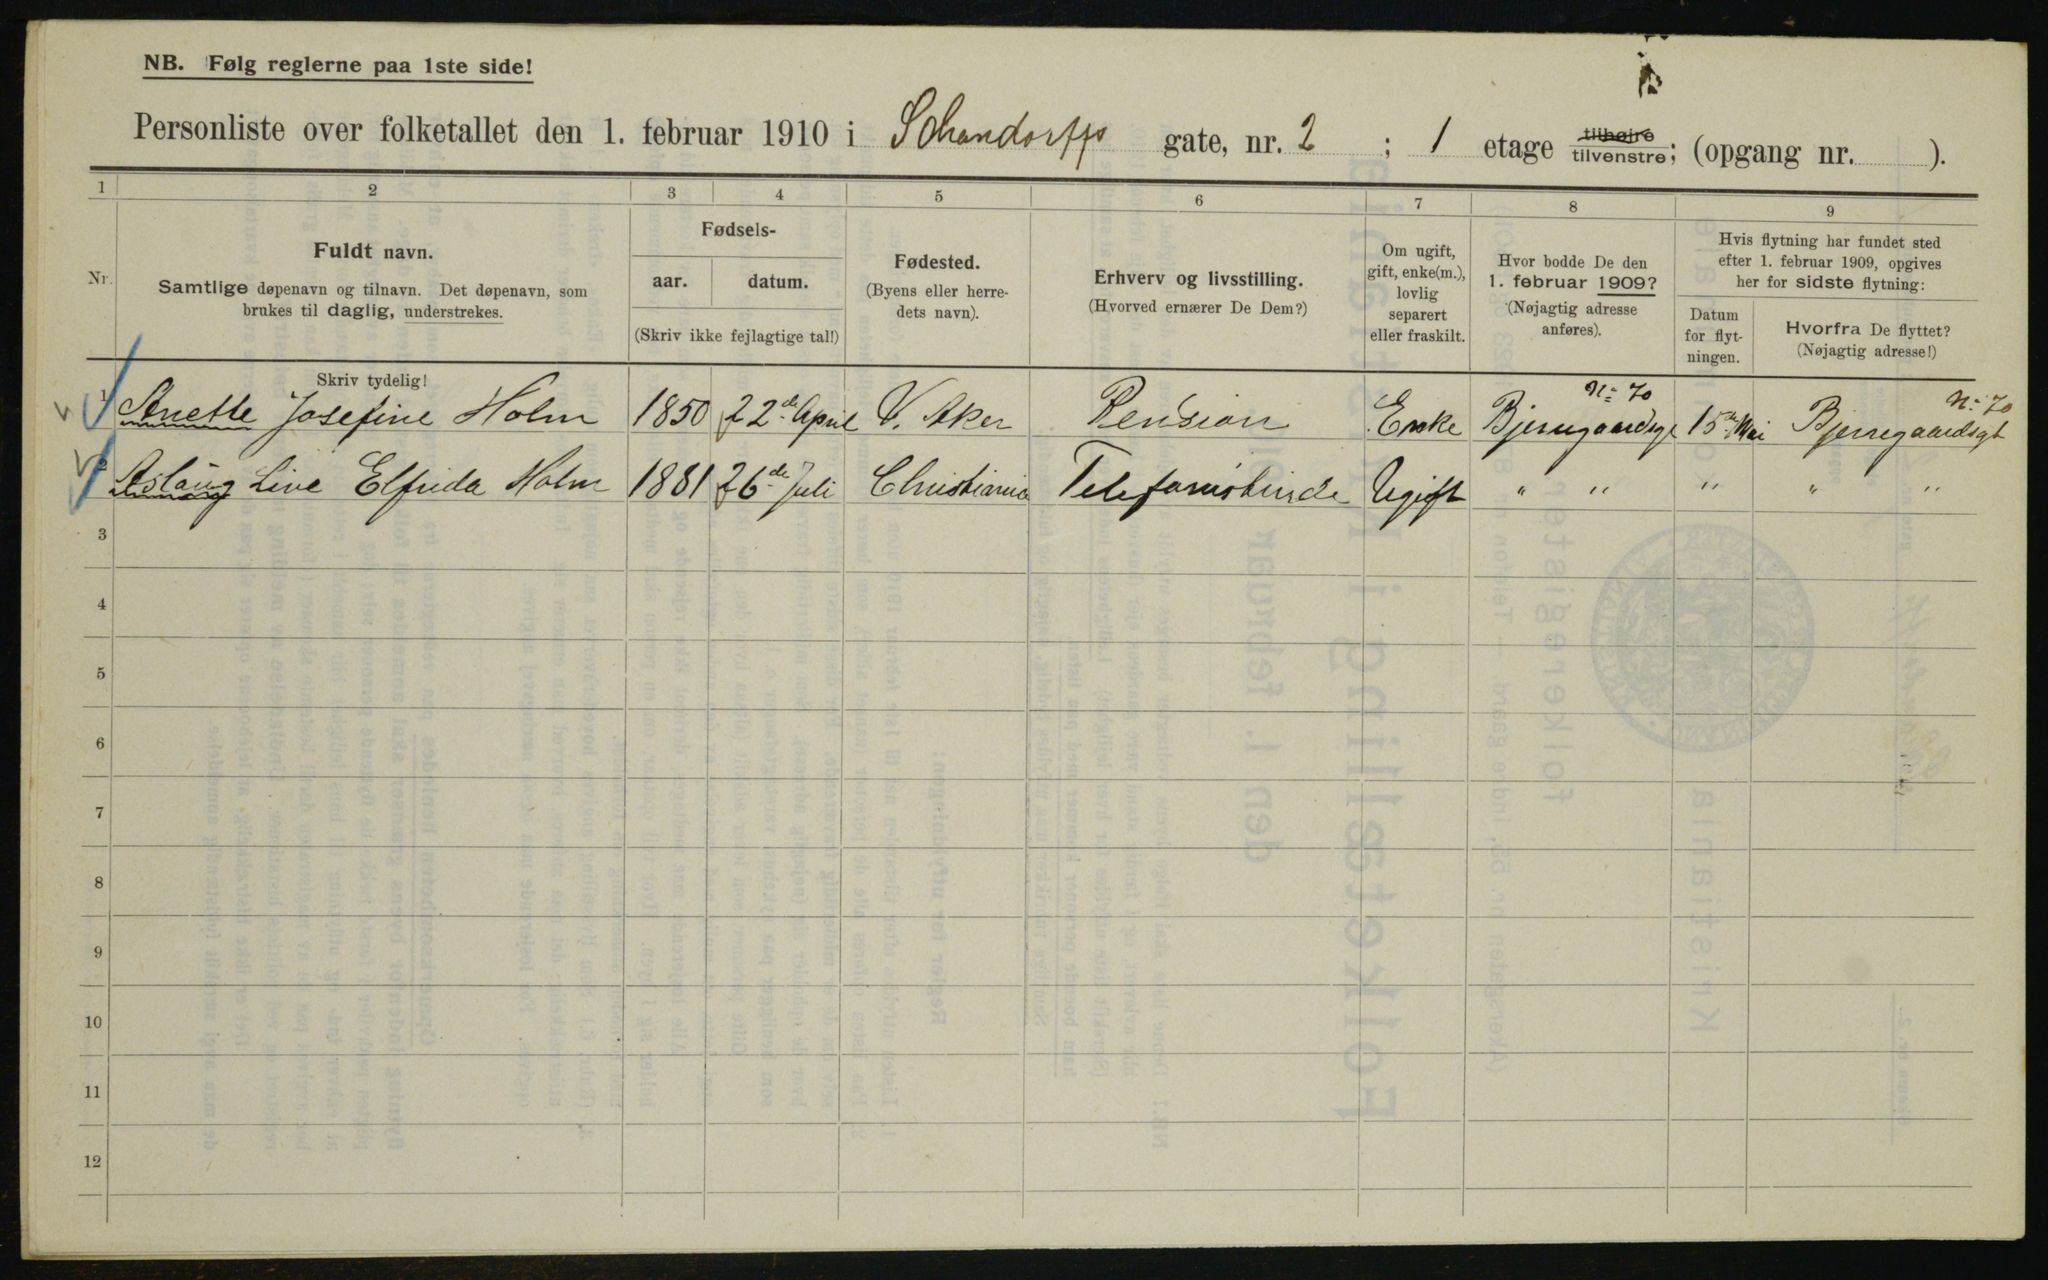 NB. Følg reglerne paa 1ste side!
Personliste over folketallet den 1. februar 1910 i Schandorffs gate, nr. 2 ; 1 etage tilhøire tilvenstre; (opgang nr. ).
1 2 3 4 5 6 7 8 9
Nr.
Fuldt navn.
Samtlige døpenavn og tilnavn. Det døpenavn, som
brukes til daglig, understrekes.
Fødsels-
aar. datum.
(Skriv ikke fejlagtige tal!)
Fødested.
(Byens eller herre-
dets navn).
Erhverv og livsstilling.
(Hvorved ernærer De Dem?)
Om ugift,
gift, enke(m.),
lovlig
separert
eller fraskilt.
Hvor bodde De den
1. februar 1909?
(Nøjagtig adresse
anføres).
Hvis flytning har fundet sted
efter 1. februar 1909, opgives
her for sidste flytning:
Datum
for flyt-
ningen.
Hvorfra De flyttet?
(Nøjagtig adresse!)
Skriv tydelig!
1 Anette Josefine Holm 1850 22de April V. Aker Pension Enke Bjerregaardsgt No 70 15de Mai Bjerregaardsgt No 70
2 Aslaug Live Elfrida Holm 1881 26de Juli Christiania Telefonistinde Ugift " " " " "
3
4
5
6
7
8
9
10
11
12